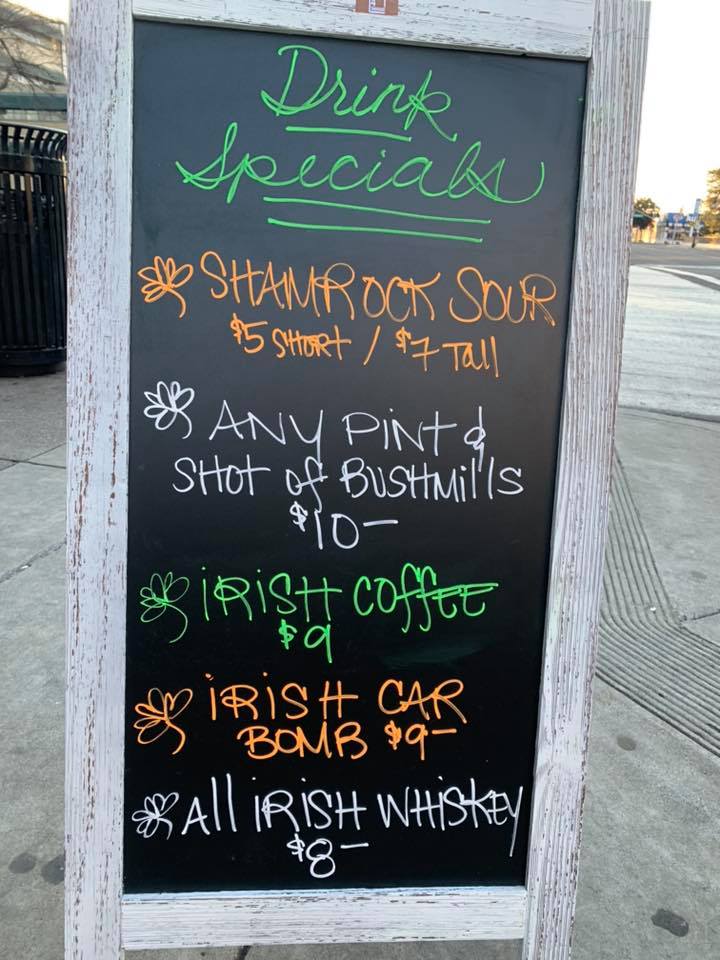 Drink
Specials
SHAMROCK SOUR
$5 SHORT / $7 Tall
ANY PINT &
SHOT of BUSHMIllS
$10-
IRISH COFFEE
$9
IRISH CAR
BOMB $9-
All IRISH WHISKEY
$8-